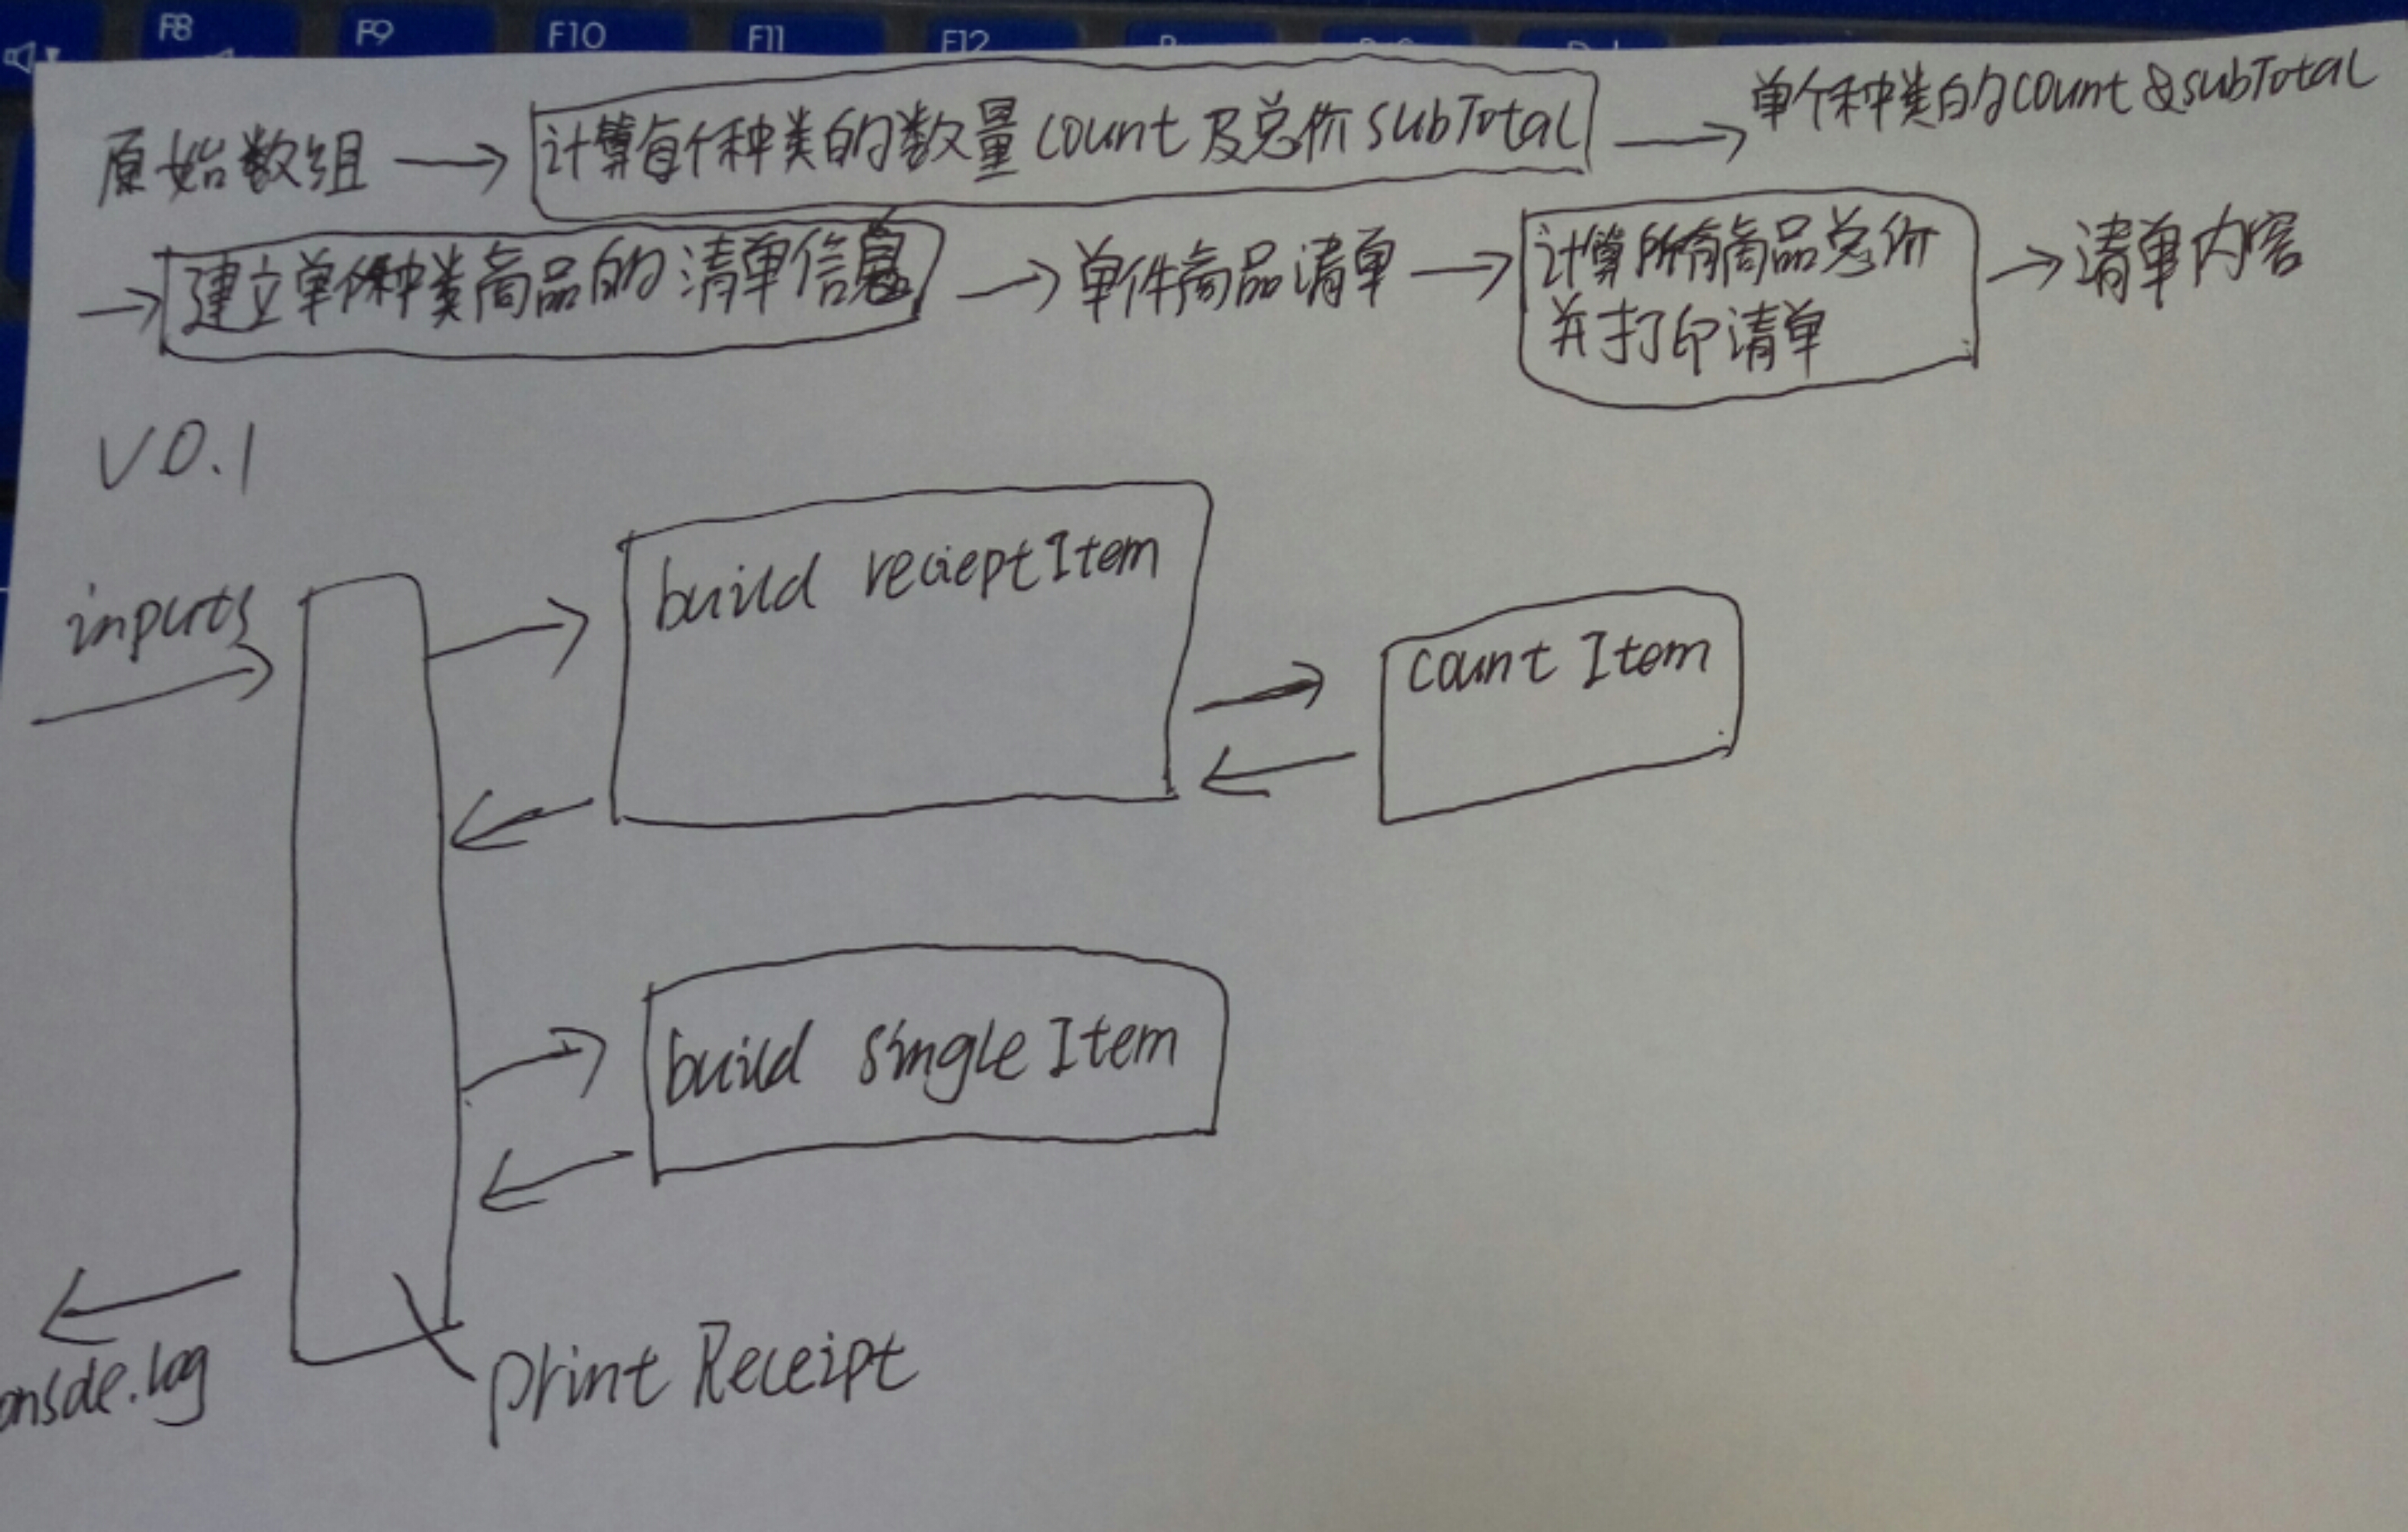 F8 F9 F10 F11 F12
原始数组 → 计算每个种类的数量count及总价subTotal → 单个种类的count&subTotal
→ 建立单个种类商品的清单信息 → 单件商品清单 → 计算所有商品总价 → 清单内容
并打印清单
V0.1
build recieptItem
inputs
count Item
build single Item
print Receipt
onsole.log